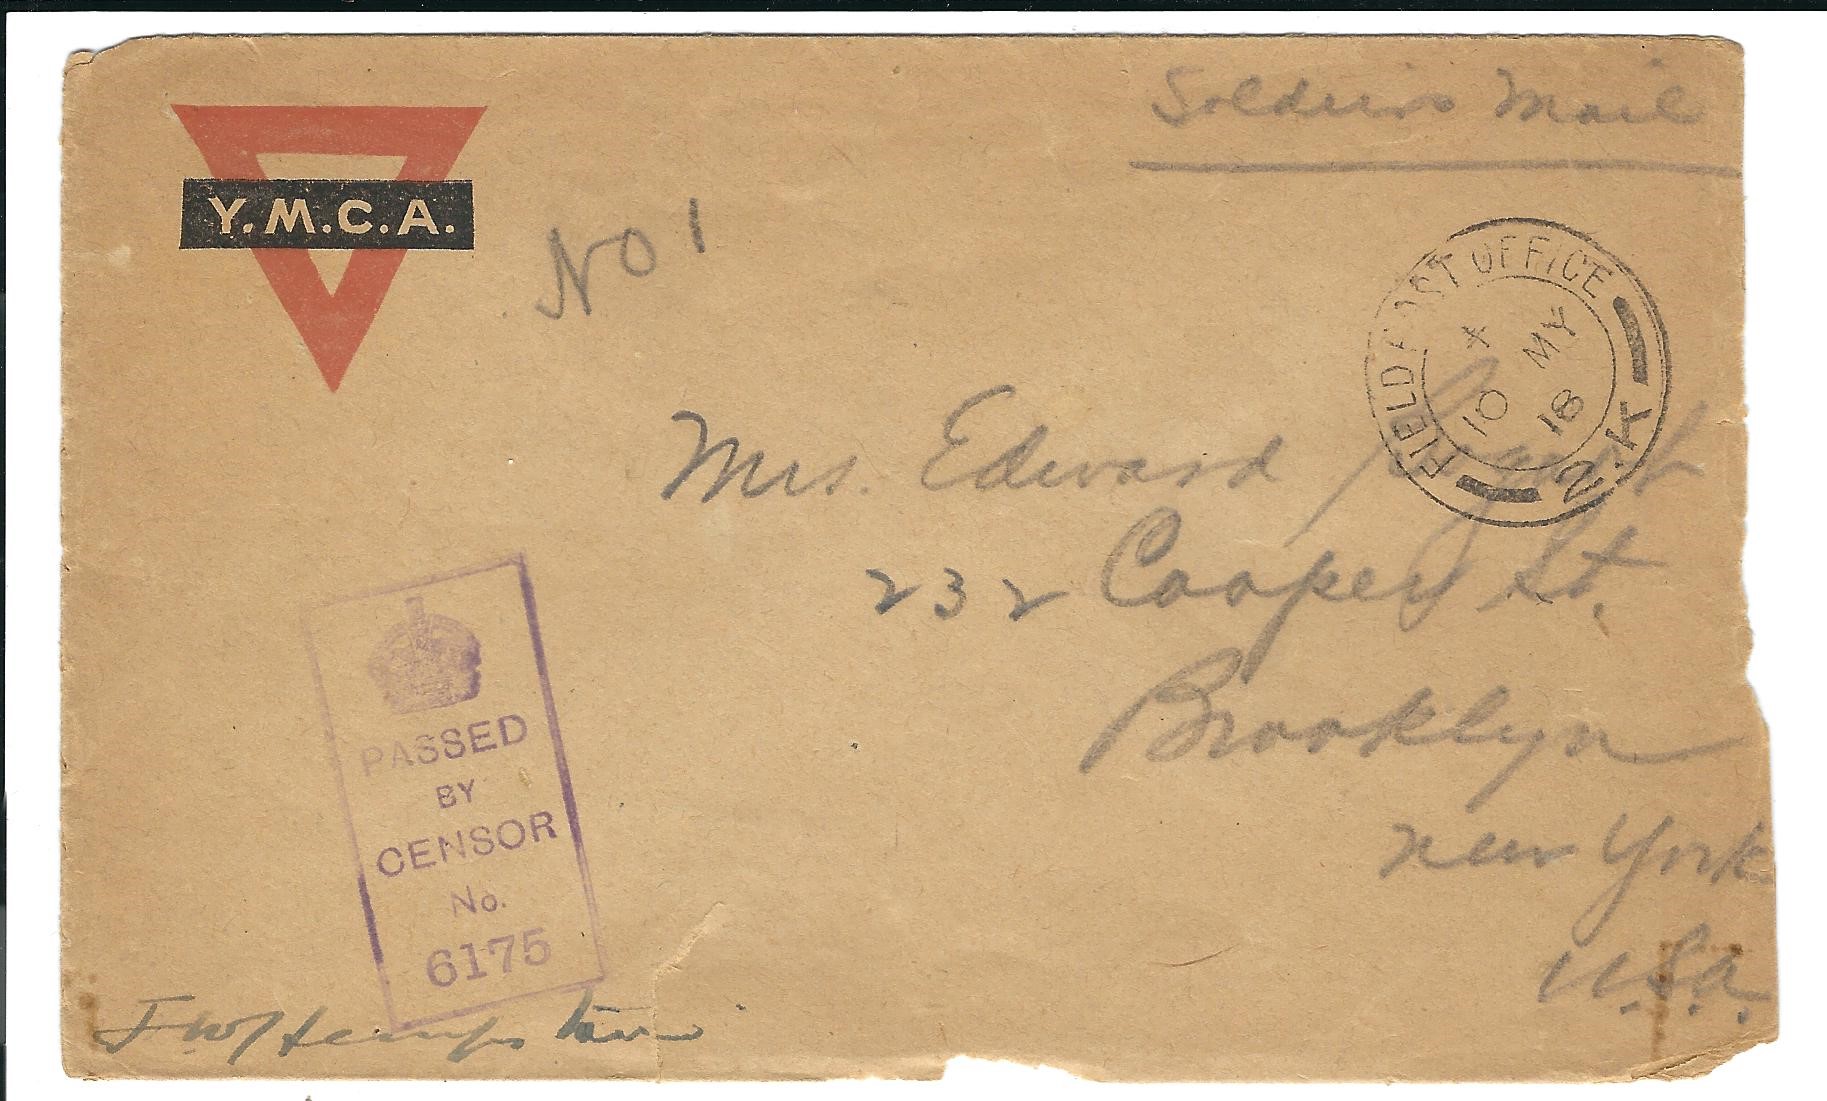 Soldiers Mail
Y.M.C.A.
NO 1
FIELD POST OFFICE
X MY
10 18
2.K
Mrs. Edward
232 Cooper St.
Brooklyn
New York
U.S.A.
PASSED
BY
CENSOR
No.
6175